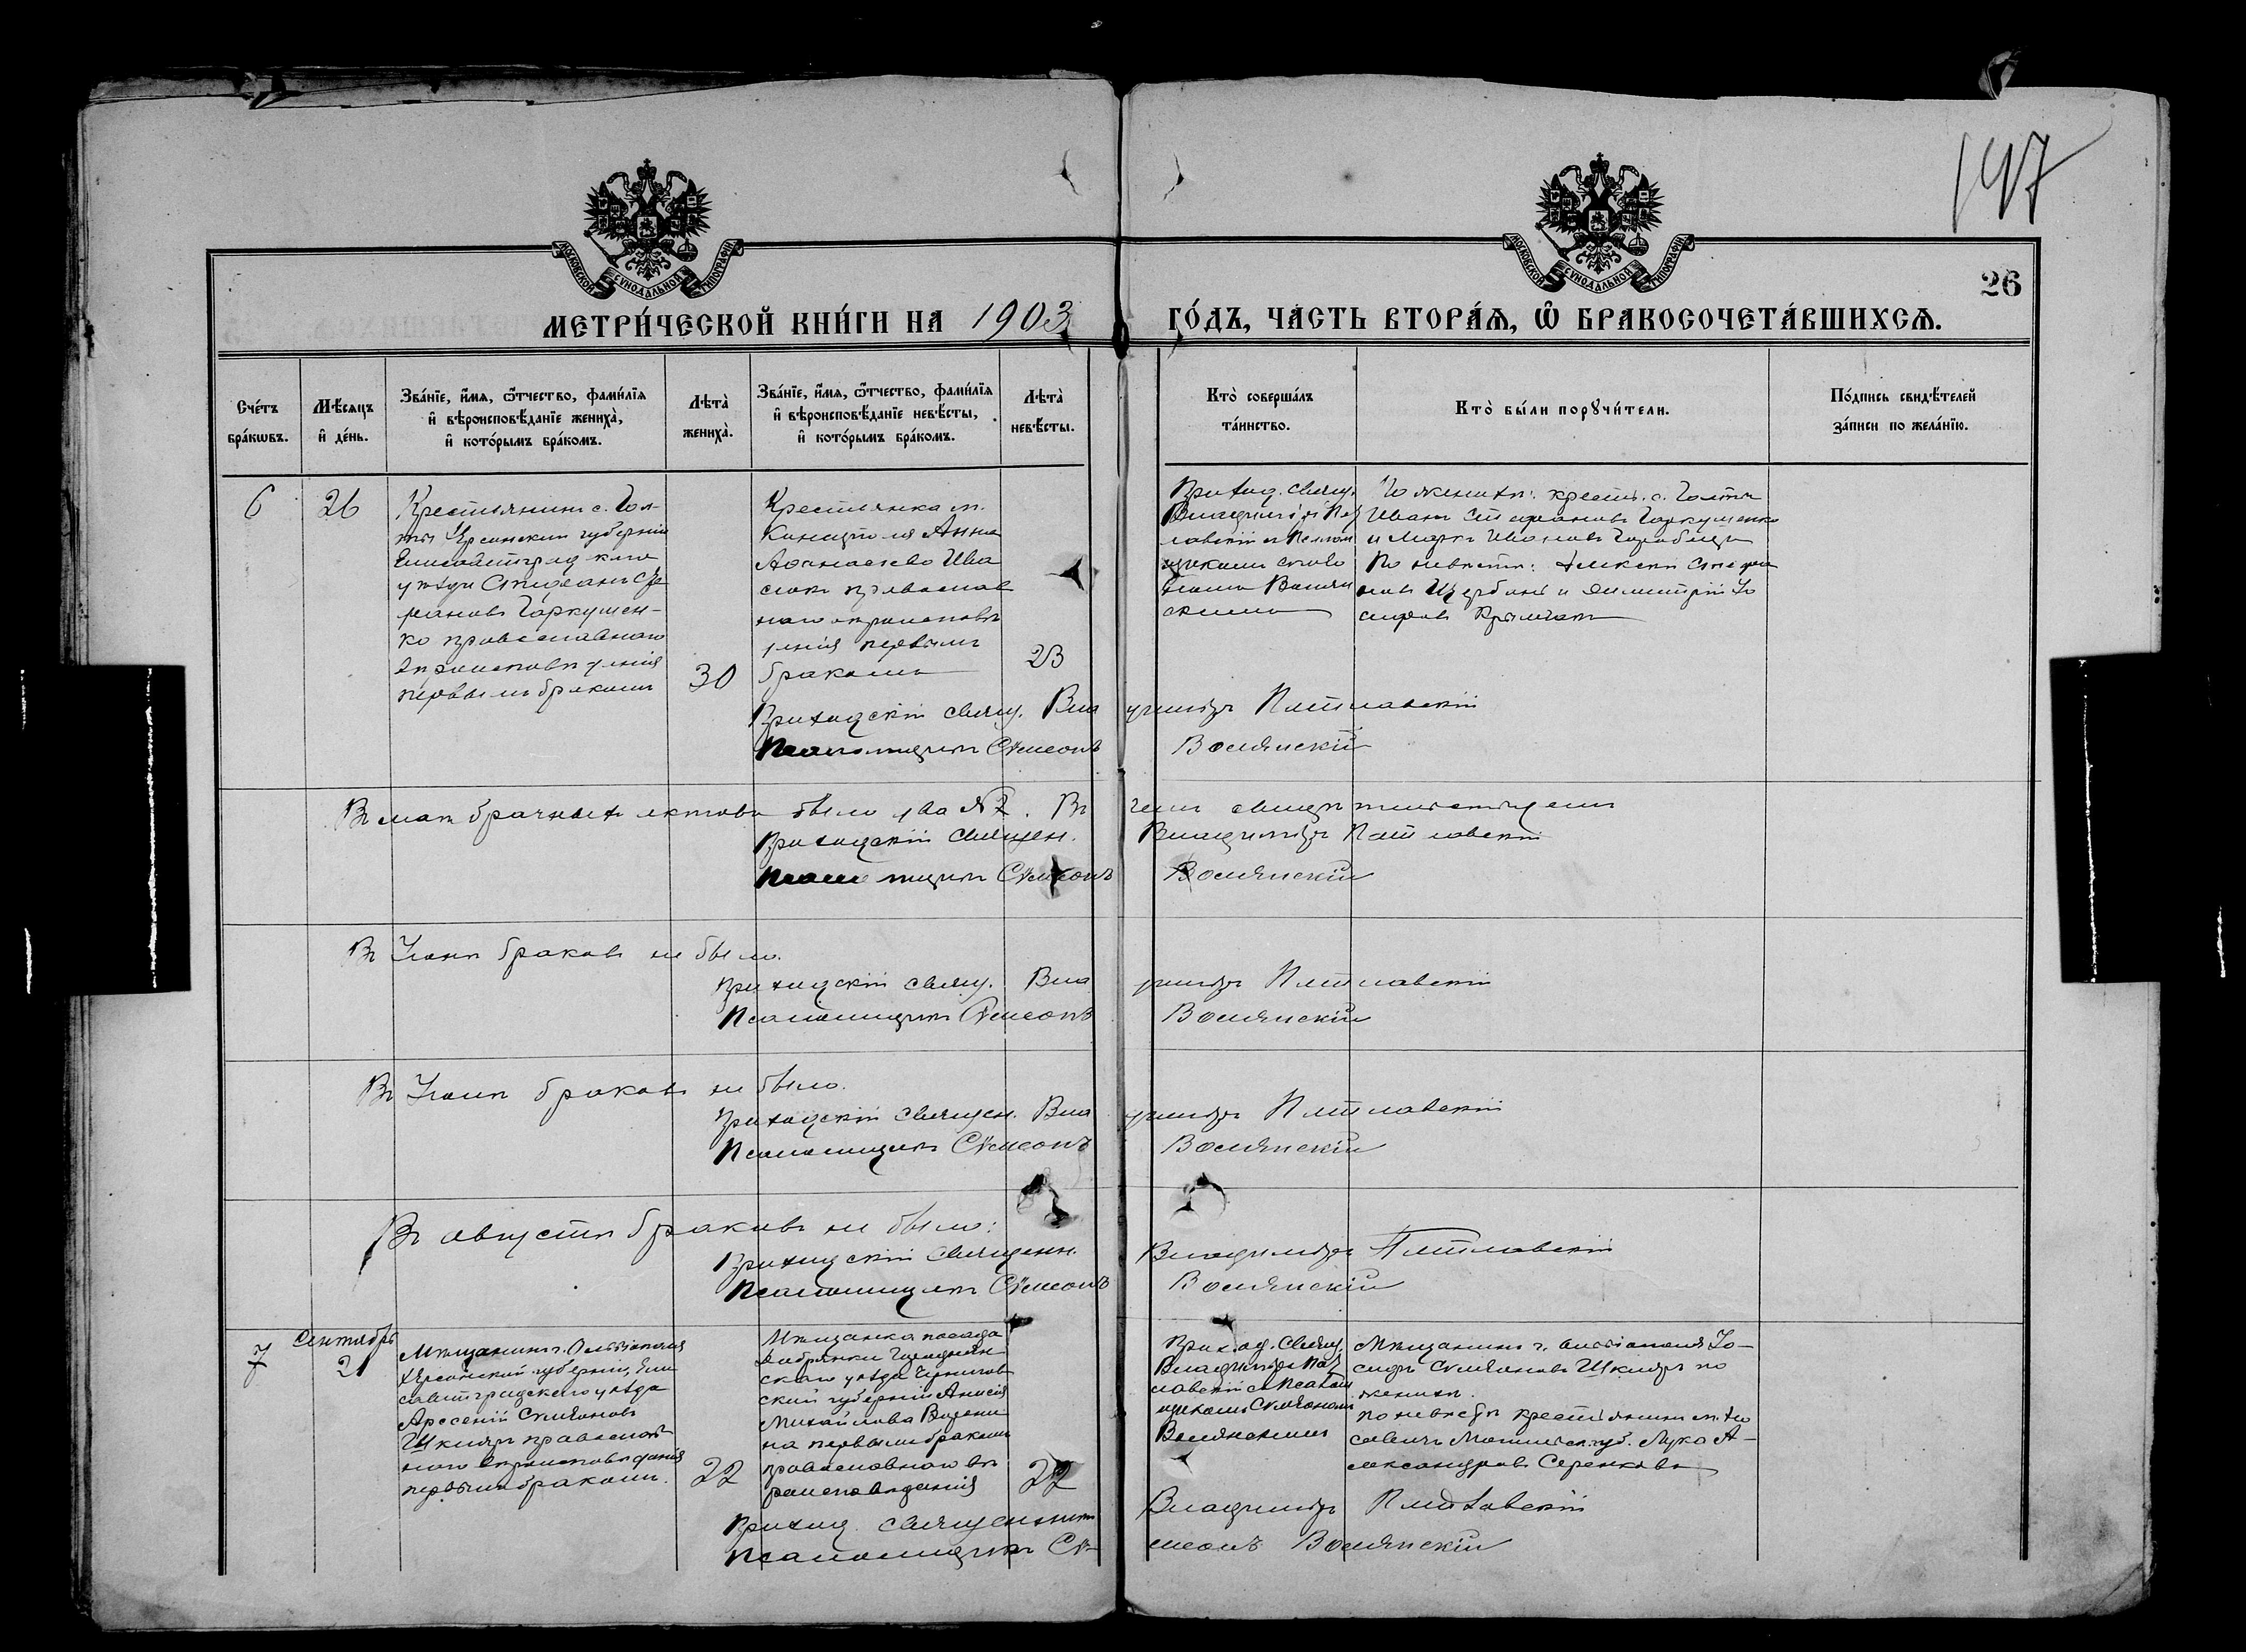 197
МОСКОВСКОЙ СѴНОДАЛЬНОЙ ТИПОГРАФІИ
МОСКОВСКОЙ СѴНОДАЛЬНОЙ ТИПОГРАФІИ
26
МЕТРИ́ЧЕСКОЙ КНИ́ГИ НА 1903 ГО́ДЪ, ЧА́СТЬ ВТОРА́Ѧ, Ѽ БРАКОСОЧЕТА́ВШИХСѦ.
Сче́тъ
бра́кѡвъ.
Мѣ́сяцъ
и҆ де́нь.
Зва́нїе, и҆́мя, ѻ҆́тчество, фами́лїя
и҆ вѣроисповѣ́данїе жениха̀,
и҆ кото́рымъ бра́комъ.
Лѣта̀
жениха̀.
Зва́нїе, и҆́мя, ѻ҆́тчество, фами́лїя
и҆ вѣроисповѣ́данїе невѣ́сты,
и҆ кото́рымъ бра́комъ.
Лѣта̀
невѣ́сты.
Кто̀ соверша́лъ
та́инство.
Кто̀ бы́ли порꙋчи́тели.
По́дпись свидѣ́телей
за́писи по жела́нїю.
6
26
Крестьянинъ с. Гол-
ты Херсонской губерніи
Елисаветградскаго
уѣзда Стефанъ Сте
фановъ Гаркушен-
ко православнаго
вѣроисповѣданія
первымъ бракомъ
30
Крестьянка м.
Анна
православ
наго вѣроисповѣ
данія первымъ
бракомъ
23
Приход. Свящ.
Владиміръ
По женихѣ: крест. с. Голты
Иванъ Стефановъ Гаркушенко
и Марко Ивановъ
По невѣстѣ: Алексѣй Стефа
новъ Щербань и Димитрій Іо
сифовъ
Приходскій Свящ. Владиміръ
Псаломщикъ Сѵмеонъ Волянскій
Въ маѣ брачныхъ актовъ было два №2. Въ чемъ свидѣтельствуемъ
Приходскій Священ. Владиміръ
Псаломщикъ Сѵмеонъ Волянскій
Въ Іюнѣ браковъ не было.
Приходскій Свящ. Владиміръ
Псаломщикъ Сѵмеонъ Волянскій
Въ Іюлѣ браковъ не было.
Приходскій Священ. Владиміръ
Псаломщикъ Сѵмеонъ Волянскій
Въ августѣ браковъ не было:
Приходскій Священн. Владиміръ
Псаломщикъ Сѵмеонъ Волянскій
7
Сентябрь
21
Мѣщанинъ г. Ольвіополя
Херсонской губерніи, Ели
саветградскаго уѣзда
Арсеній Сѵмеоновъ
Шкляръ православ
наго вѣроисповѣданія
первымъ бракомъ.
22
Мѣщанка посада
Добрянки Городнян-
скаго уѣзда Чернигов
ской губерніи Анисія
Михайлова
на первымъ бракомъ
православнаго вѣ
роисповѣданія
22
Приход. Свящ.
Владиміръ
съ Псалом
щикомъ Сѵмеономъ
Волянскимъ
Мѣщанинъ г. Ольвіополя Іо-
сифъ Сѵмеоновъ Шкляръ по
женихѣ.
по невѣстѣ крестьянинъ
Могилевск. губ. Лука А-
лександровъ Серенковъ
Приход. Священникъ Владиміръ
Псаломщикъ Сѵ-меонъ Волянскій